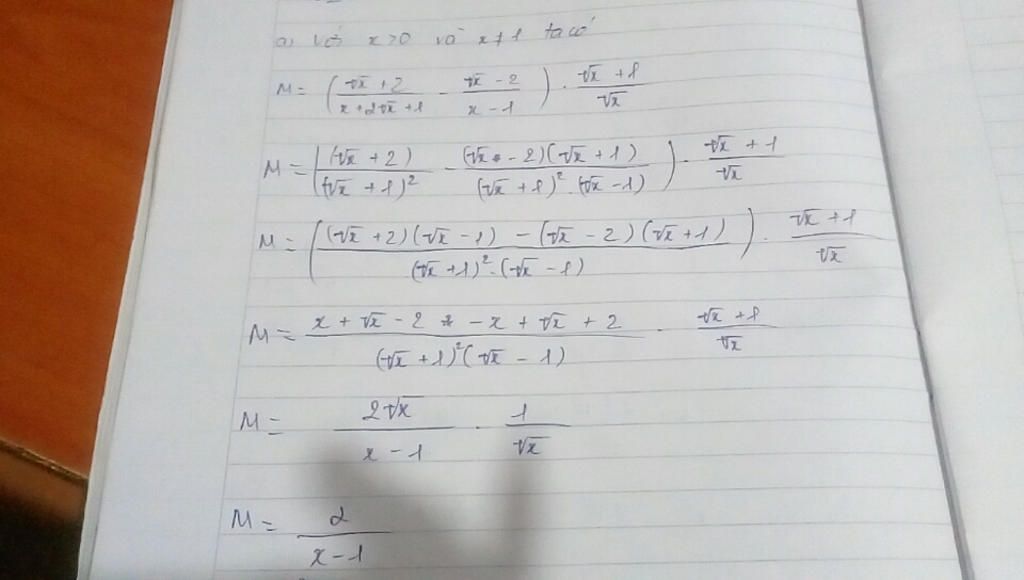 a) Với x>0 và x≠1 ta có
M = ( (√x + 2)/(x + 2√x + 1) - (√x - 2)/(x - 1) ) . (√x + 1)/√x
M = ( (√x + 2)/(√x + 1)² - (√x - 2)(√x + 1)/((√x + 1)².(√x - 1)) ) . (√x + 1)/√x
M = ( ((√x + 2)(√x - 1) - (√x - 2)(√x + 1))/((√x + 1)².(√x - 1)) ) . (√x + 1)/√x
M = (x + √x - 2 - x + √x + 2)/((√x + 1)²(√x - 1)) . (√x + 1)/√x
M = 2√x/(x - 1) . 1/√x
M = 2/(x - 1)